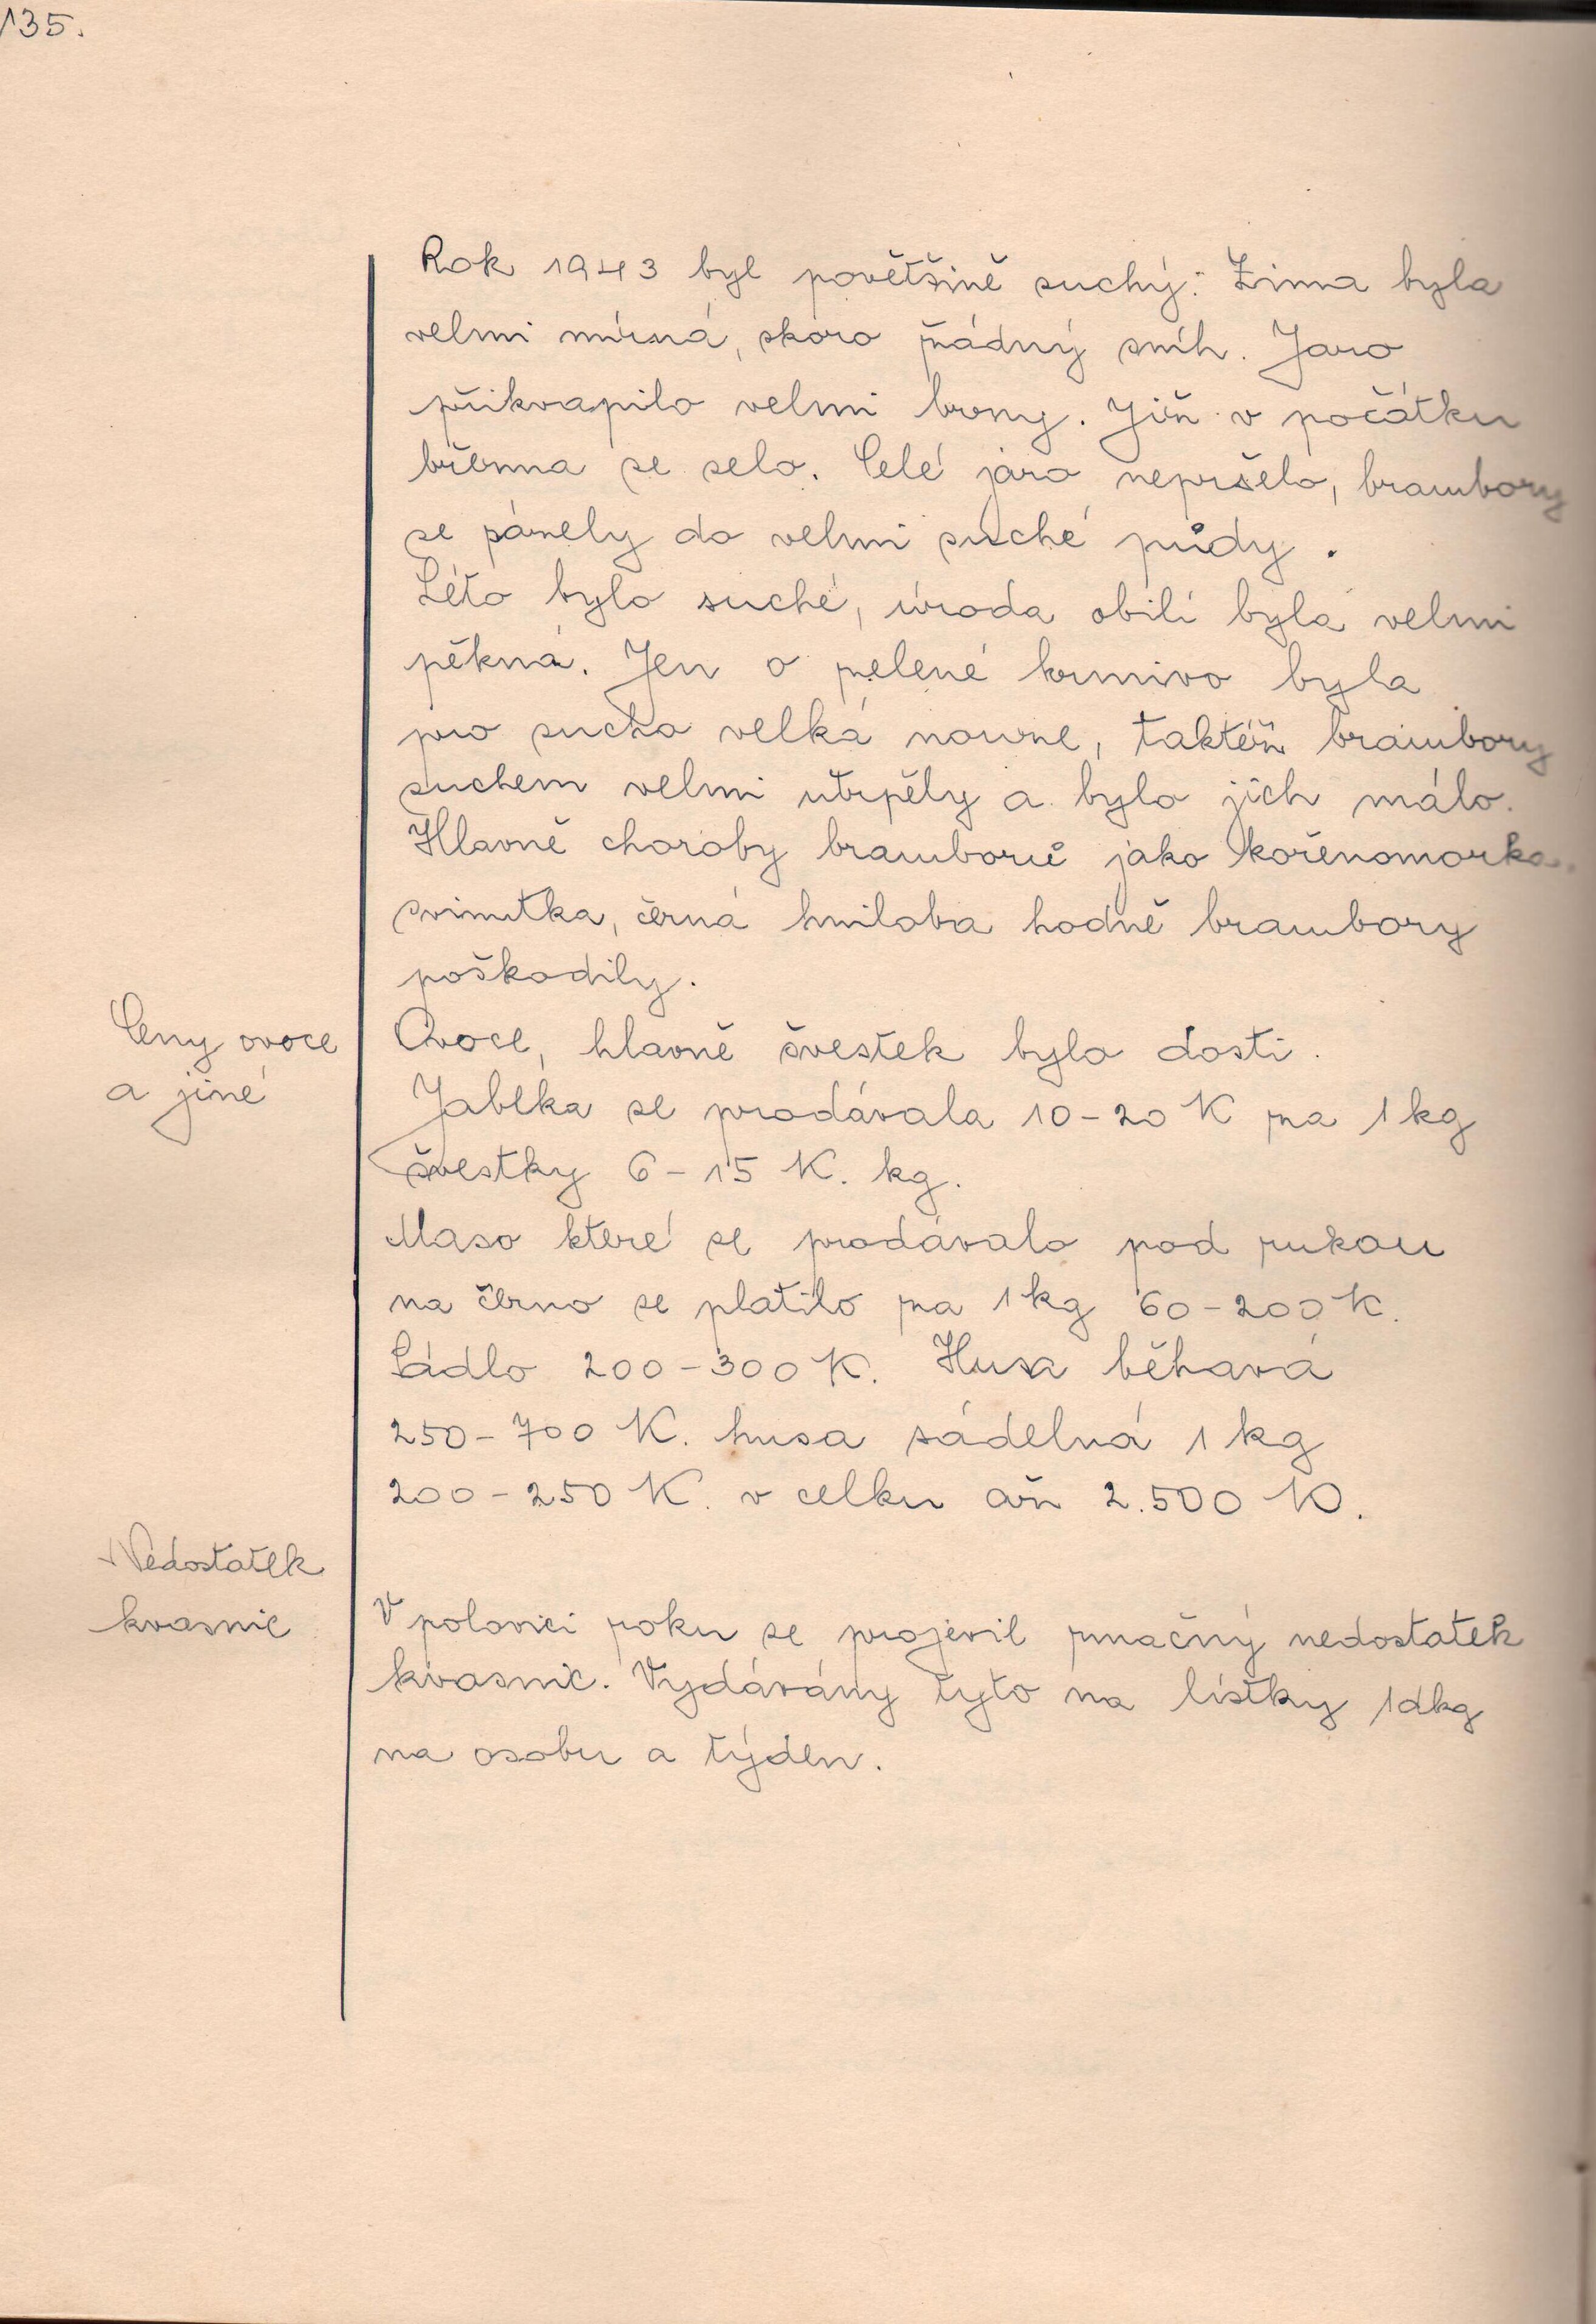 135.
Rok 1943 byl povětšině suchý. Zima byla
velmi mírná, skoro žádný sníh. Jaro
přikvapilo velmi brzy. Již v počátku
března se selo. Celé jaro nepršelo, brambory
se sázely do velmi suché půdy.
Léto bylo suché, úroda obilí byla velmi
pěkná. Jen o zelené krmivo byla
pro sucho velká nouze, taktéž brambory
suchem velmi utrpěly a bylo jich málo.
Hlavně choroby bramborů jako kořenomorka
svinutka, černá hniloba hodně brambory
poškodily.
Ceny ovoce
a jiné
Ovoce, hlavně švestek bylo dosti.
Jablka se prodávala 10-20 K za 1 kg
švestky 6-15 K. kg.
Maso které se prodávalo pod rukou
na černo se platilo za 1 kg 60-200 K.
Sádlo 200-300 K. Husa běhavá
250-700 K. husa sádelná 1 kg
200-250 K. v celku až 2.500 K.
Nedostatek
kvasnic
V polovici roku se projevil značný nedostatek
kvasnic. Vydávány tyto na lístky 1 dkg
na osobu a týden.